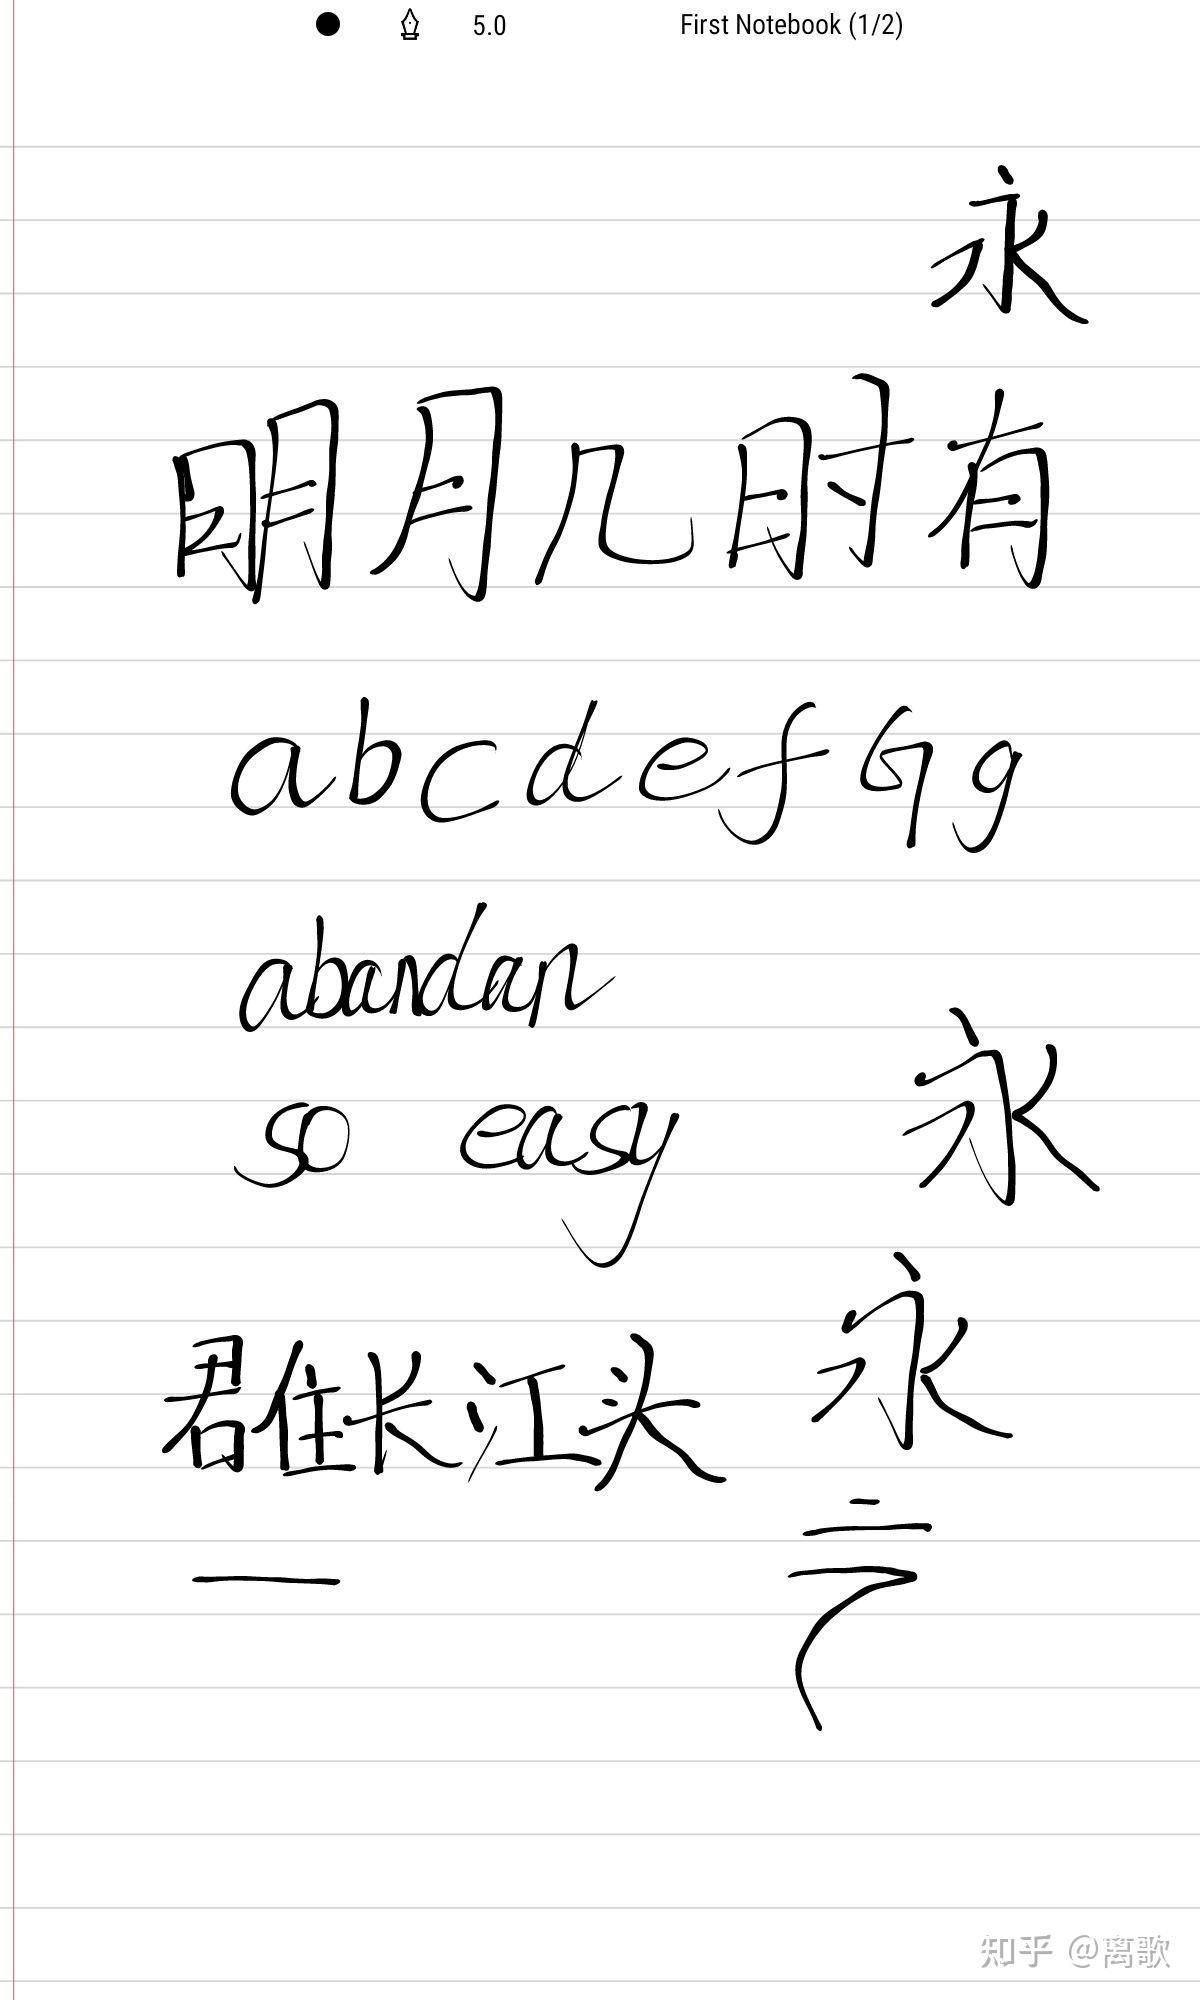 5.0 First Notebook (1/2)
永
明月几时有
abcdefGg
abandan
so easy
永
永
君住长江头
一
知乎 @离歌